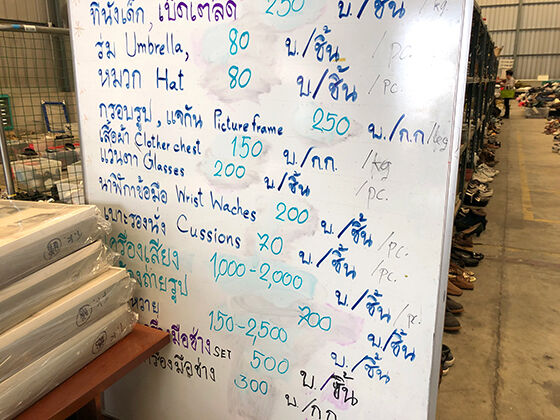 ที่นั่งเด็ก, เบ็ดเตล็ด 250 บ./ชิ้น /pc.
ร่ม Umbrella, 80 บ./ชิ้น /pc.
หมวก Hat 80 บ/ชิ้น /pc.
กรอบรูป, แจกัน Picture frame 250 บ./ก.ก /kg
เสื้อผ้า Clother chest 150 บ./กก. /kg
แว่นตา Glasses 200 บ/ชิ้น /pc.
นาฬิกาข้อมือ Wrist Waches 200 บ./ชิ้น /pc.
เบาะรองนั่ง Cussions 70 บ./ชิ้น /pc.
ครื่องเสียง 1,000-2,000 บ./ชิ้น /pc.
องถ่ายรูป 700 บ./ชิ้น
หวาย 150-2,500 บ./ชิ้น
มือช่าง SET 500 บ./ชิ้น
องมือช่าง 300 บ/กก